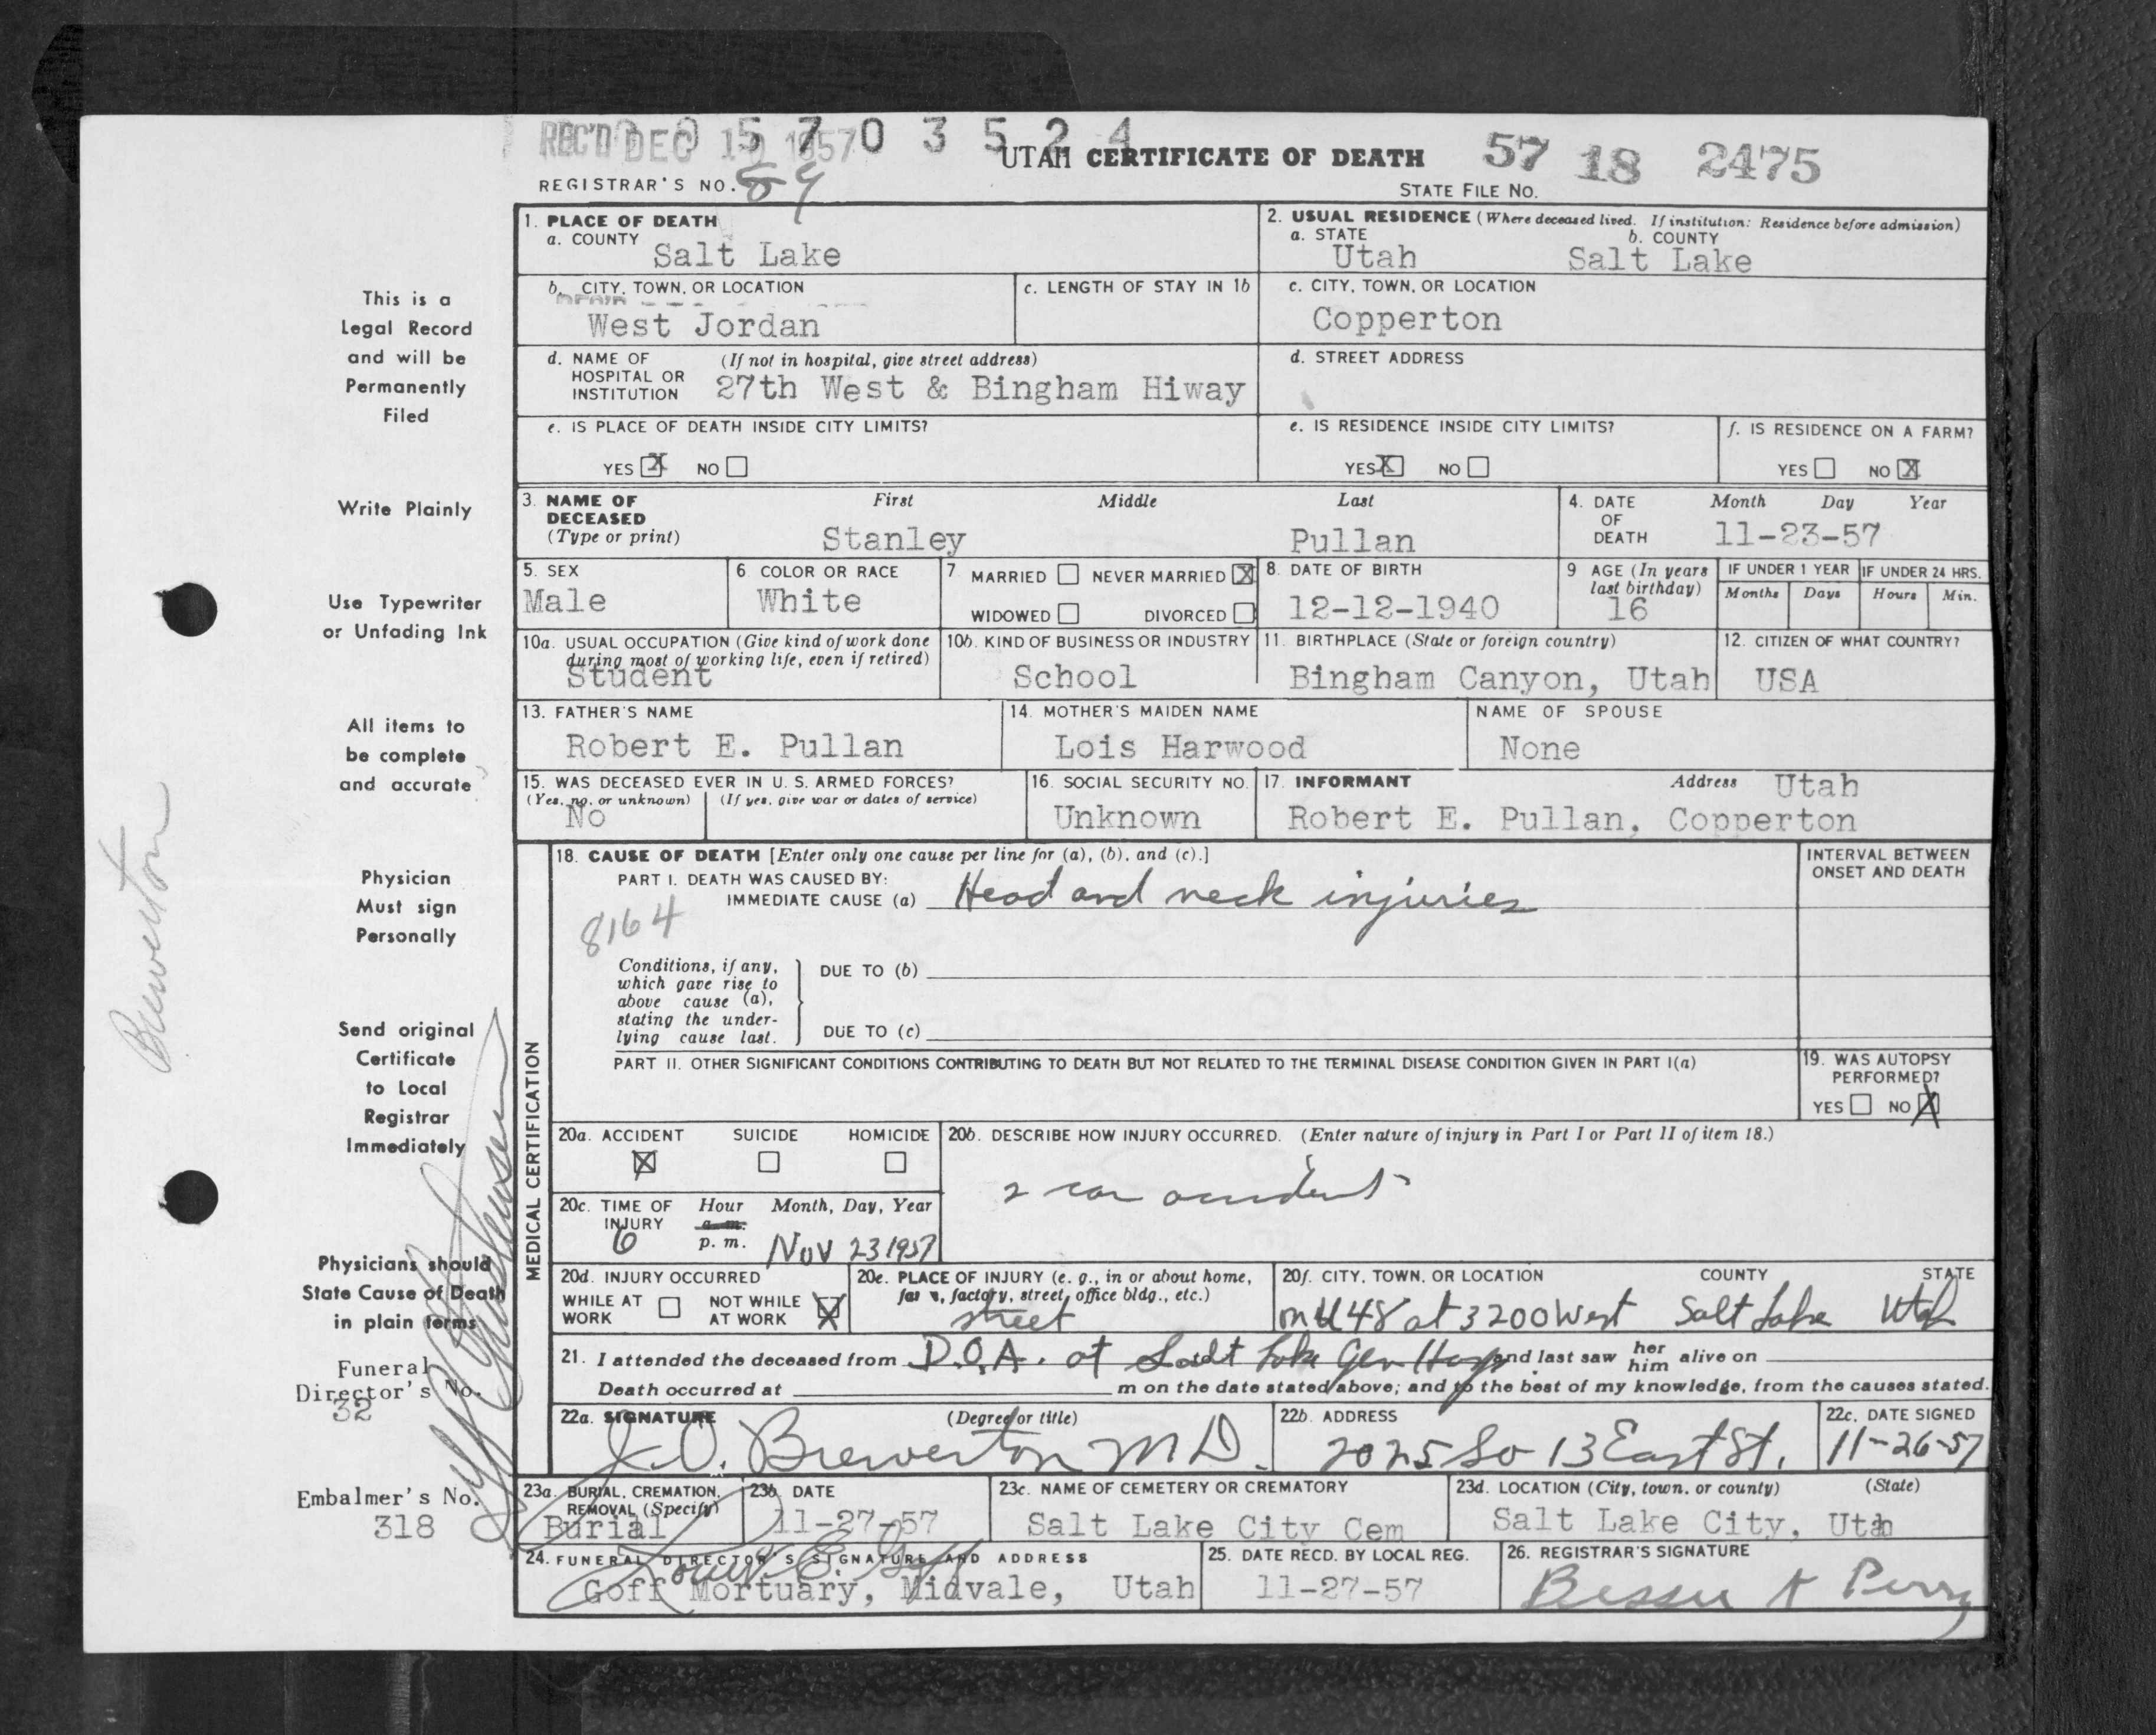 REC'D DEC 1957
5 7 0 3 5 2 4
UTAH CERTIFICATE OF DEATH
57 18 2475
REGISTRAR'S NO. 89
STATE FILE NO.
1. PLACE OF DEATH
a. COUNTY
Salt Lake
2. USUAL RESIDENCE (Where deceased lived. If institution: Residence before admission)
a. STATE b. COUNTY
Utah Salt Lake
b. CITY, TOWN, OR LOCATION
West Jordan
c. LENGTH OF STAY IN 1b
c. CITY, TOWN, OR LOCATION
Copperton
d. NAME OF HOSPITAL OR INSTITUTION
(If not in hospital, give street address)
27th West & Bingham Hiway
d. STREET ADDRESS
e. IS PLACE OF DEATH INSIDE CITY LIMITS?
YES X NO
e. IS RESIDENCE INSIDE CITY LIMITS?
YES X NO
f. IS RESIDENCE ON A FARM?
YES NO X
3. NAME OF DECEASED (Type or print)
First Middle Last
Stanley Pullan
4. DATE OF DEATH
Month Day Year
11-23-57
5. SEX
Male
6. COLOR OR RACE
White
7. MARRIED NEVER MARRIED X
WIDOWED DIVORCED
8. DATE OF BIRTH
12-12-1940
9 AGE (In years last birthday)
16
IF UNDER 1 YEAR
Months Days
IF UNDER 24 HRS.
Hours Min.
10a. USUAL OCCUPATION (Give kind of work done
during most of working life, even if retired)
Student
10b. KIND OF BUSINESS OR INDUSTRY
School
11. BIRTHPLACE (State or foreign country)
Bingham Canyon, Utah
12. CITIZEN OF WHAT COUNTRY?
USA
13. FATHER'S NAME
Robert E. Pullan
14. MOTHER'S MAIDEN NAME
Lois Harwood
NAME OF SPOUSE
None
15. WAS DECEASED EVER IN U. S. ARMED FORCES?
(Yes, no, or unknown) (If yes, give war or dates of service)
No
16. SOCIAL SECURITY NO.
Unknown
17. INFORMANT Address Utah
Robert E. Pullan, Copperton
MEDICAL CERTIFICATION
18. CAUSE OF DEATH [Enter only one cause per line for (a), (b), and (c).]
PART I. DEATH WAS CAUSED BY:
IMMEDIATE CAUSE (a) Head and neck injuries
8164
Conditions, if any,
which gave rise to
above cause (a),
stating the under-
lying cause last.
DUE TO (b)
DUE TO (c)
INTERVAL BETWEEN
ONSET AND DEATH
PART II. OTHER SIGNIFICANT CONDITIONS CONTRIBUTING TO DEATH BUT NOT RELATED TO THE TERMINAL DISEASE CONDITION GIVEN IN PART I(a)
19. WAS AUTOPSY
PERFORMED?
YES NO X
20a. ACCIDENT SUICIDE HOMICIDE
X
20b. DESCRIBE HOW INJURY OCCURRED. (Enter nature of injury in Part I or Part II of item 18.)
2 car accident
20c. TIME OF INJURY Hour Month, Day, Year
a. m.
6 p. m. Nov 23 1957
20d. INJURY OCCURRED
WHILE AT WORK NOT WHILE AT WORK X
20e. PLACE OF INJURY (e. g., in or about home,
farm, factory, street, office bldg., etc.)
street
20f. CITY, TOWN, OR LOCATION COUNTY STATE
on U48 at 3200 West Salt Lake Utah
21. I attended the deceased from D.O.A. at Salt Lake Gen Hosp and last saw her him alive on
Death occurred at m on the date stated above; and to the best of my knowledge, from the causes stated.
22a. SIGNATURE (Degree or title)
J. O. Brewerton M D.
22b. ADDRESS
2025 So 13 East St.
22c. DATE SIGNED
11-26-57
23a. BURIAL, CREMATION,
REMOVAL (Specify)
Burial
23b. DATE
11-27-57
23c. NAME OF CEMETERY OR CREMATORY
Salt Lake City Cem
23d. LOCATION (City, town, or county) (State)
Salt Lake City, Utah
24. FUNERAL DIRECTOR'S SIGNATURE AND ADDRESS
Goff Mortuary, Midvale, Utah
25. DATE RECD. BY LOCAL REG.
11-27-57
26. REGISTRAR'S SIGNATURE
Bessie K Perry
This is a
Legal Record
and will be
Permanently
Filed
Write Plainly
Use Typewriter
or Unfading Ink
All items to
be complete
and accurate
Physician
Must sign
Personally
Send original
Certificate
to Local
Registrar
Immediately
Physicians should
State Cause of Death
in plain terms
Funeral
Director's No.
32
Embalmer's No.
318
Brewerton